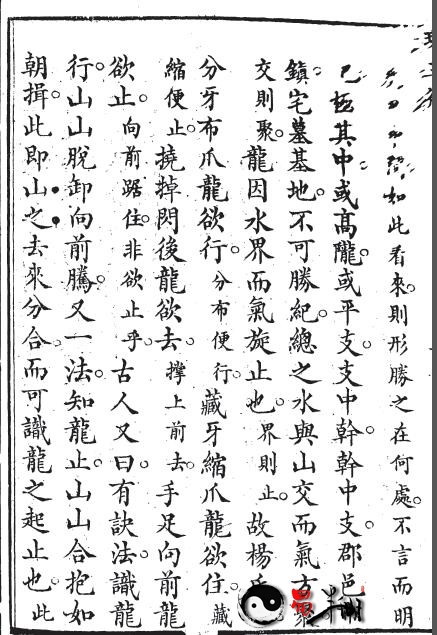 如此看來。則形勝之在何處。不言而明
其中或高隴。或平支。支中幹。幹中支。郡邑
鎮宅墓基地。不可勝紀。總之水與山交而氣方
交則聚。龍因水界而氣旋止也。界則止。故楊
分牙布爪龍欲行。分布便行。藏牙縮爪龍欲住。藏
縮便止。撓掉閃後龍欲去。撐上前去。手足向前龍
欲止。向前踞住。非欲止乎。古人又曰。有訣法識龍
行。山山脫卸向前騰。又一法。知龍止。山山合抱如
朝揖。此即山之去來分合。而可識龍之起止也。此